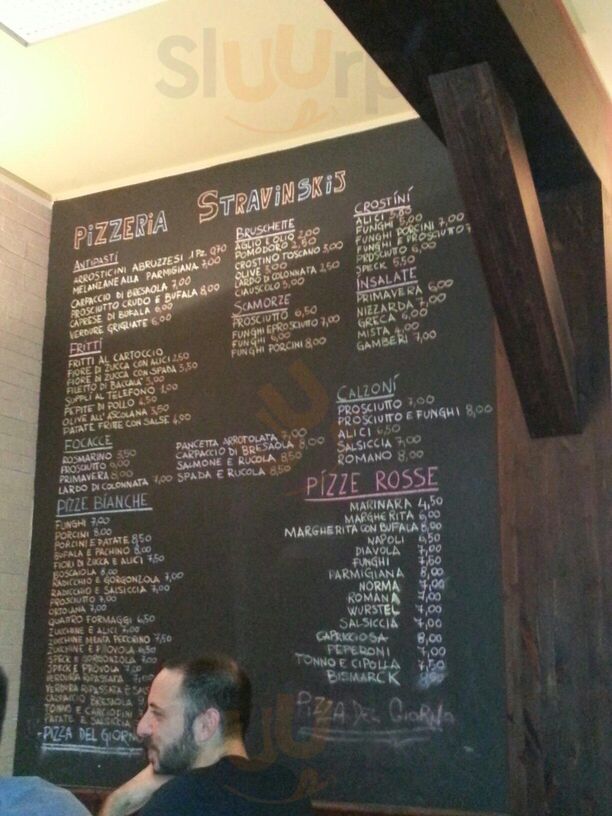 Sluurp
PIZZERIA STRAVINSKIJ
ANTIPASTI
ARROSTICINI ABRUZZESI 1 PZ. 0,70
MELANZANE ALLA PARMIGIANA 7,00
CARPACCIO DI BRESAOLA 7,00
PROSCIUTTO CRUDO E BUFALA 8,00
CAPRESE DI BUFALA 6,00
VERDURE GRIGLIATE 6,00
FRITTI
FRITTI AL CARTOCCIO
FIORE DI ZUCCA CON ALICI 2,50
FIORE DI ZUCCA CON SPADA 3,50
FILETTO DI BACCALA' 3,00
SUPPLI AL TELEFONO
PEPITE DI POLLO 4,50
OLIVE ALL'ASCOLANA 3,50
PATATE FRITTE CON SALSE 4,00
BRUSCHETTE
AGLIO E OLIO 2,00
POMODORO 2,50
CROSTINO TOSCANO 3,00
OLIVE 3,00
LARDO DI COLONNATA 2,50
CIAUSCOLO 3,00
SCAMORZE
PROSCIUTTO 6,50
FUNGHI E PROSCIUTTO 7,00
FUNGHI 6,00
FUNGHI PORCINI 8,00
CROSTINI
ALICI
FUNGHI 5,00
FUNGHI PORCINI 7,00
FUNGHI E PROSCIUTTO 7
PROSCIUTTO 6,00
SPECK 5,50
INSALATE
PRIMAVERA 6,00
NIZZARDA 7,00
GRECA 6,00
MISTA 4,00
GAMBERI 7,00
FOCACCE
ROSMARINO 3,50
PROSCIUTTO 6,00
PRIMAVERA 8,00
LARDO DI COLONNATA 7,00
PANCETTA ARROTOLATA 7,00
CARPACCIO DI BRESAOLA 8,00
SALMONE E RUCOLA 8,50
SPADA E RUCOLA 8,50
CALZONI
PROSCIUTTO 7,00
PROSCIUTTO E FUNGHI 8,00
ALICI 6,50
SALSICCIA 7,00
ROMANO 8,00
PIZZE BIANCHE
FUNGHI 7,00
PORCINI 8,00
PORCINI E PATATE 8,50
BUFALA E PACHINO 8,00
FIORI DI ZUCCA E ALICI 7,50
BOSCAIOLA 8,00
RADICCHIO E GORGONZOLA 7,00
RADICCHIO E SALSICCIA 7,00
PROSCIUTTO 7,00
ORTOLANA 7,00
QUATTRO FORMAGGI 6,50
ZUCCHINE E ALICI 7,00
ZUCCHINE MENTA PECORINO 7,50
ZUCCHINE E PROVOLA 6,50
SPECK E GORGONZOLA 7,00
SPECK E PROVOLA 7,00
VERDURA RIPASSATA 7,00
VERDURA RIPASSATA E SALS
CARPACCIO BRESAOLA
TONNO E CARCIOFINI
PATATE E SALSICCIA
PIZZA DEL GIORN
PIZZE ROSSE
MARINARA 4,50
MARGHERITA 6,00
MARGHERITA CON BUFALA 8,00
NAPOLI 6,50
DIAVOLA 7,00
FUNGHI 7,50
PARMIGIANA 8,00
NORMA 7,00
ROMANA 7,00
WURSTEL 7,00
SALSICCIA 7,00
CAPRICCIOSA 8,00
PEPERONI 7,00
TONNO E CIPOLLA 7,50
BISMARCK
PIZZA DEL GIORNO